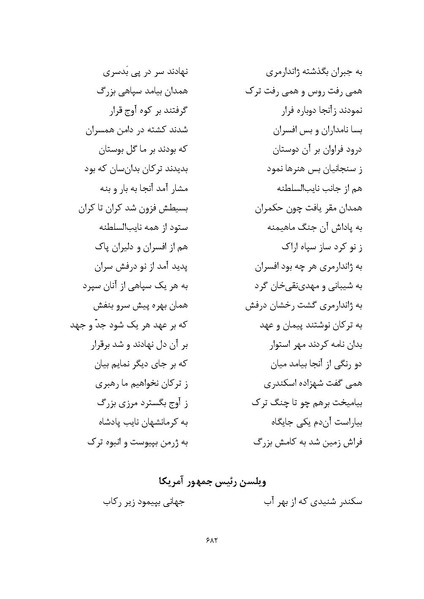 به جبران بگذشته ژاندارمری نهادند سر در پی بَدسری
همی رفت روس و همی رفت ترک همدان بیامد سپاهی بزرگ
نمودند زآنجا دوباره فرار گرفتند بر کوه آوج قرار
بسا نامداران و بس افسران شدند کشته در دامن همسران
درود فراوان بر آن دوستان که بودند بر ما گل بوستان
ز سنجانیان بس هنرها نمود بدیدند ترکان بدان‌سان که بود
هم از جانب نایب‌السلطنه مشار آمد آنجا به بار و بنه
همدان مقر یافت چون حکمران بسیطش فزون شد کران تا کران
به پاداش آن جنگ ماهیمنه ستود از همه نایب‌السلطنه
ز نو کرد ساز سپاه اراک هم از افسران و دلیران پاک
به ژاندارمری هر چه بود افسران پدید آمد از نو درفش سران
به شیبانی و مهدی‌نقی‌خان گرد به هر یک سپاهی از آنان سپرد
به ژاندارمری گشت رخشان درفش همان بهره پیش سرو بنفش
به ترکان نوشتند پیمان و عهد که بر عهد هر یک شود جدّ و جهد
بدان نامه کردند مهر استوار بر آن دل نهادند و شد برقرار
دو رنگی از آنجا بیامد میان که بر جای دیگر نمایم بیان
همی گفت شهزاده اسکندری ز ترکان نخواهیم ما رهبری
بیامیخت برهم چو تا چنگ ترک ز آوج بگسترد مرزی بزرگ
بیاراست آن‌دم یکی جایگاه به کرمانشهان نایب پادشاه
فراش زمین شد به کامش بزرگ به ژرمن بپیوست و انبوه ترک
ویلسن رئیس جمهور آمریکا
سکندر شنیدی که از بهر آب جهانی بپیمود زیر رکاب
۶۸۲